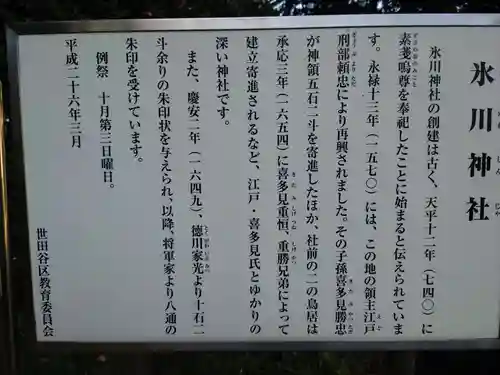 氷川神社
氷川神社の創建は古く、天平十二年(七四〇)に
素戔嗚尊を奉祀したことに始まると伝えられていま
す。永禄十三年(一五七〇)には、この地の領主江戸
刑部頼忠により再興されました。その子孫喜多見勝忠
が神領五石二斗を寄進したほか、社前の二の鳥居は
承応三年(一六五四)に喜多見重恒、重勝兄弟によって
建立寄進されるなど、江戸・喜多見氏とゆかりの
深い神社です。
また、慶安二年(一六四九)、徳川家光より十石二
斗余りの朱印状を与えられ、以降、将軍家より八通の
朱印を受けています。
例祭 十月第三日曜日。
平成二十六年三月
世田谷区教育委員会